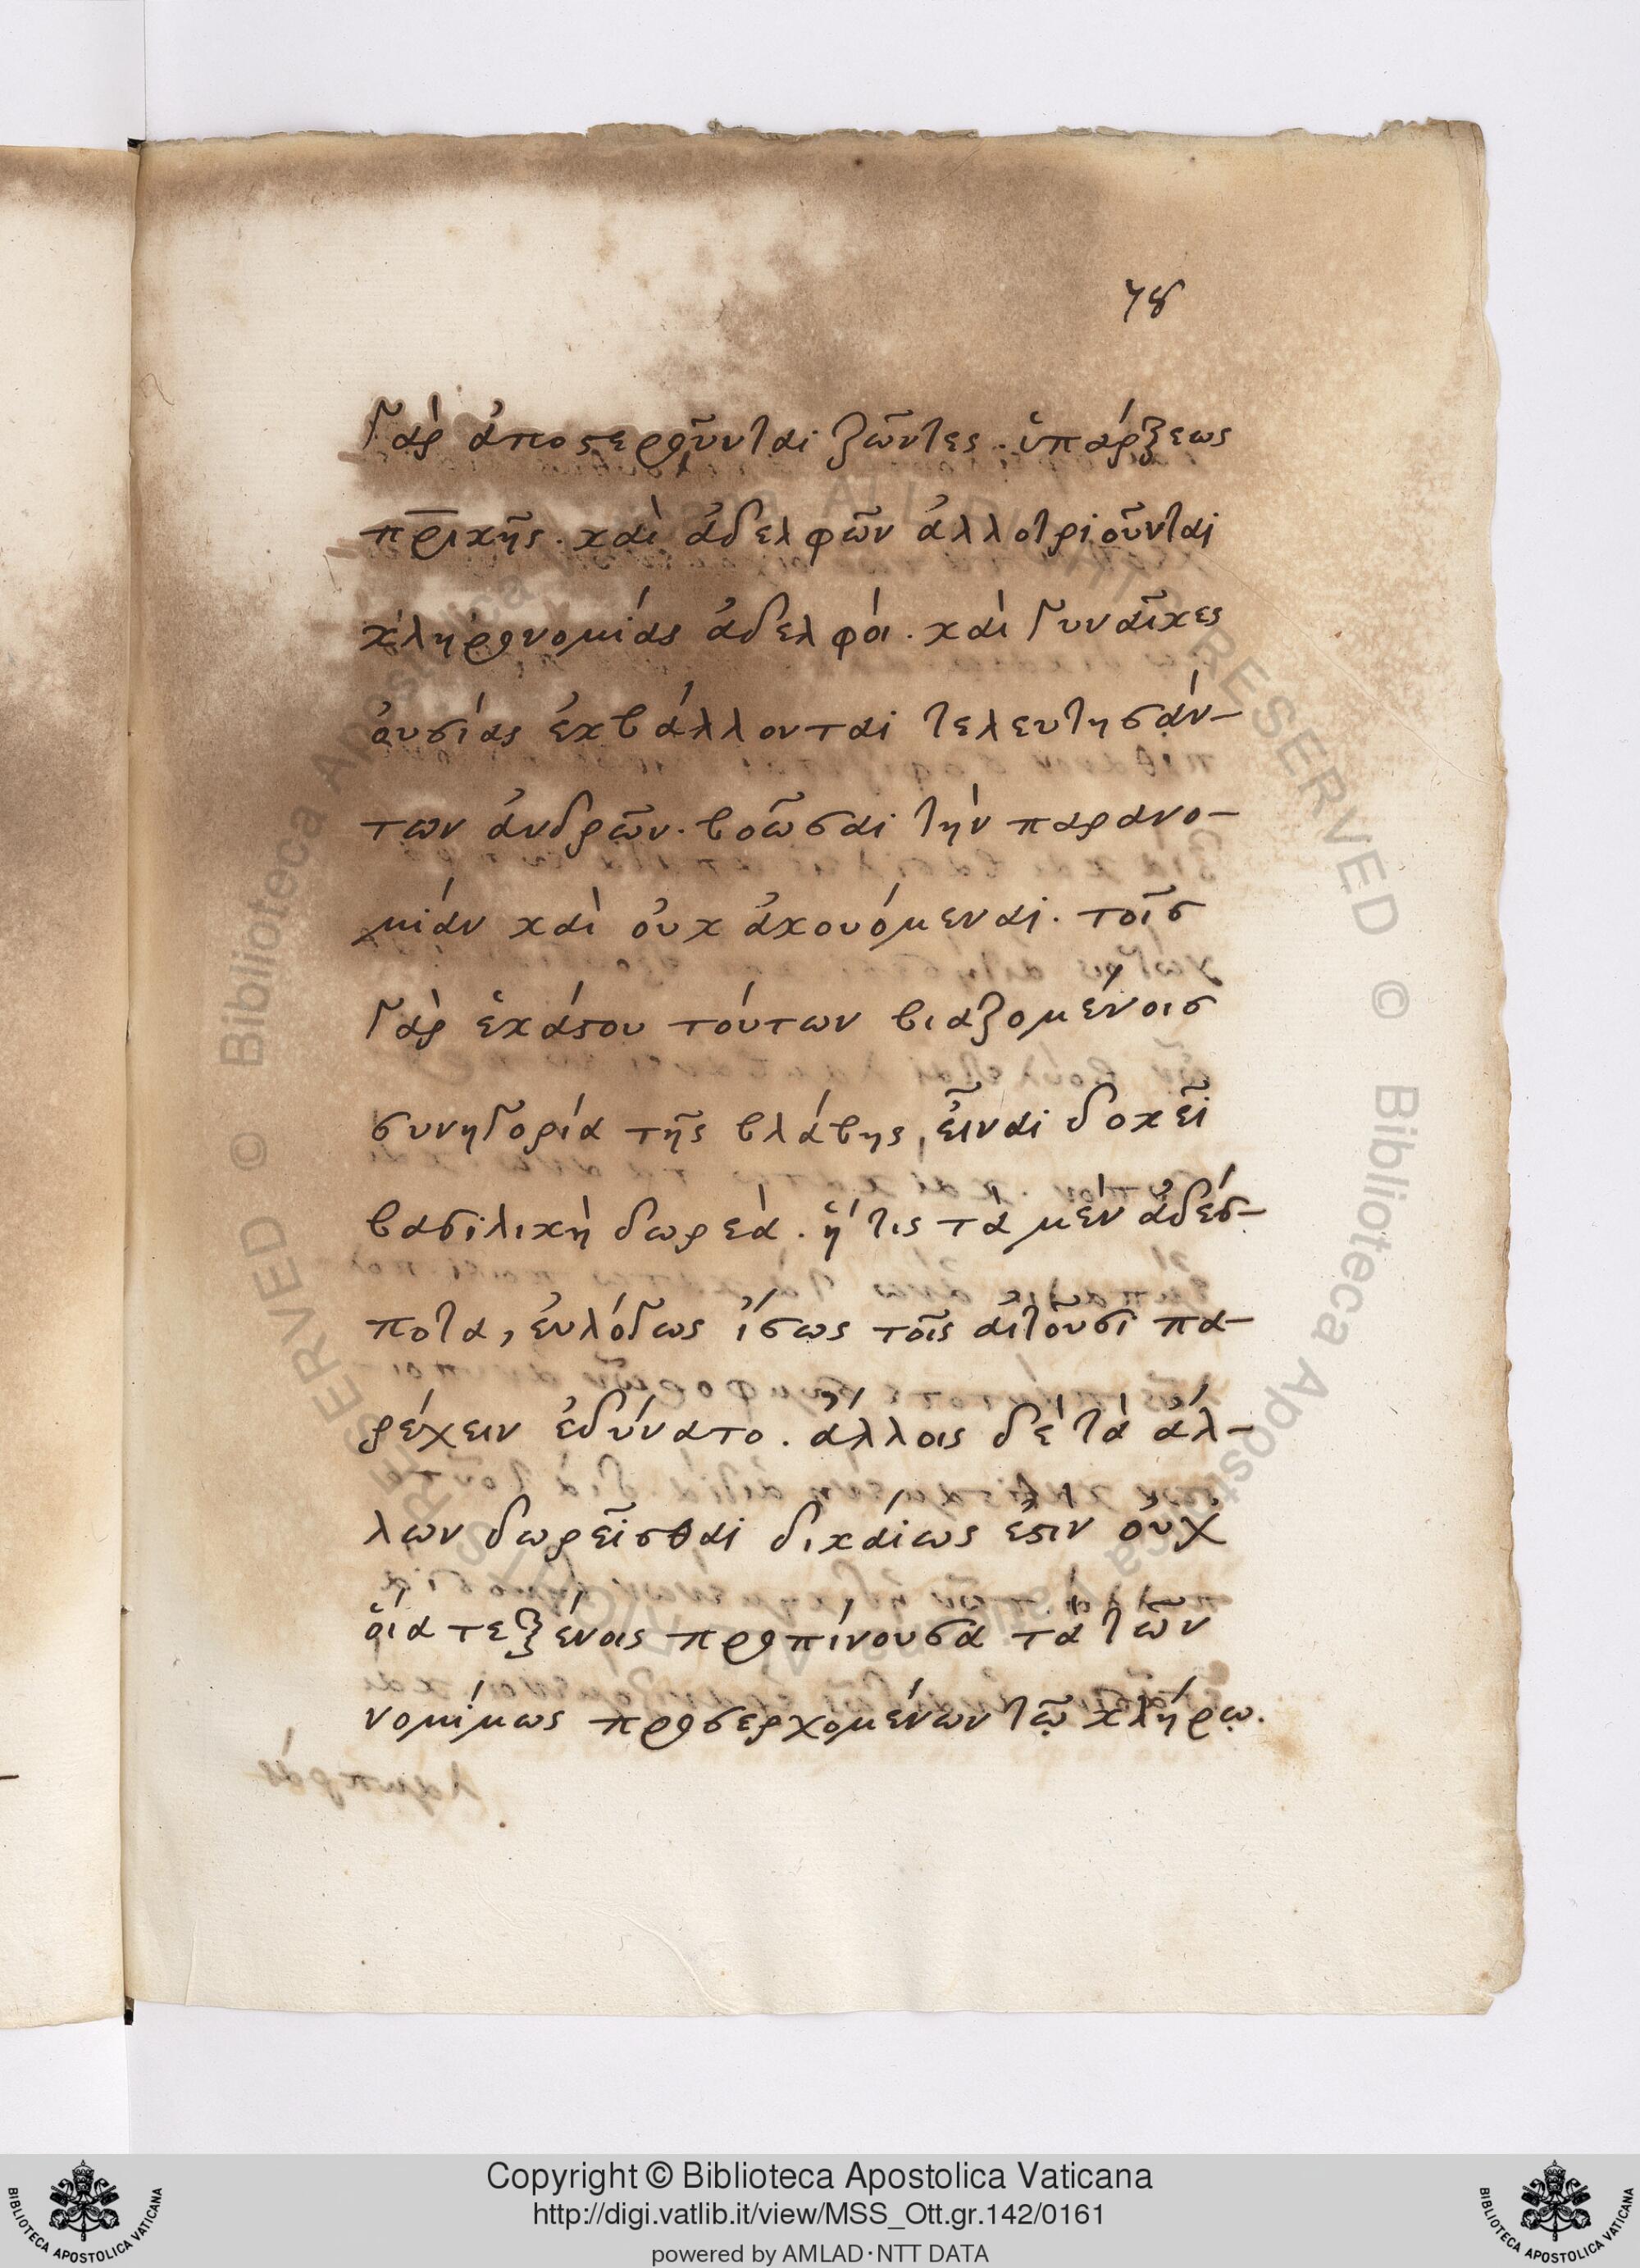 78
γὰρ ἀποστεροῦνται ζῶντες. ὑπάρξεως
πρικῆς. καὶ ἀδελφῶν ἀλλοτριοῦνται
κληρονομίας ἀδελφοί. καὶ γυναῖκες
οὐσίας ἐκβάλλονται τελευτησάν-
των ἀνδρῶν. βοῶσαι τὴν παρανο-
μίαν καὶ οὐκ ἀκουόμεναι. τοῖς
γὰρ ἑκάστου τούτων βιαζομένοις
συνηγορία τῆς βλάβης, εἶναι δοκεῖ
βασιλικὴ δωρεὰ. ἥ τις τὰ μὲν ἀδέσ-
ποτα, εὐλόγως ἴσως τοῖς αἰτοῦσι πα-
ρέχειν ἐδύνατο. ἄλλοις δὲ τὰ ἄλ-
λων δωρεῖσθαι δικαίως ἔστιν οὐχ
οἵα τε ξένοις προπίνουσα τὰ τῶν
νομίμως προσερχομένων τῷ κλήρῳ.
Copyright © Biblioteca Apostolica Vaticana
http://digi.vatlib.it/view/MSS_Ott.gr.142/0161
powered by AMLAD·NTT DATA
BIBLIOTECA APOSTOLICA VATICANA
BIBLIOTECA APOSTOLICA VATICANA